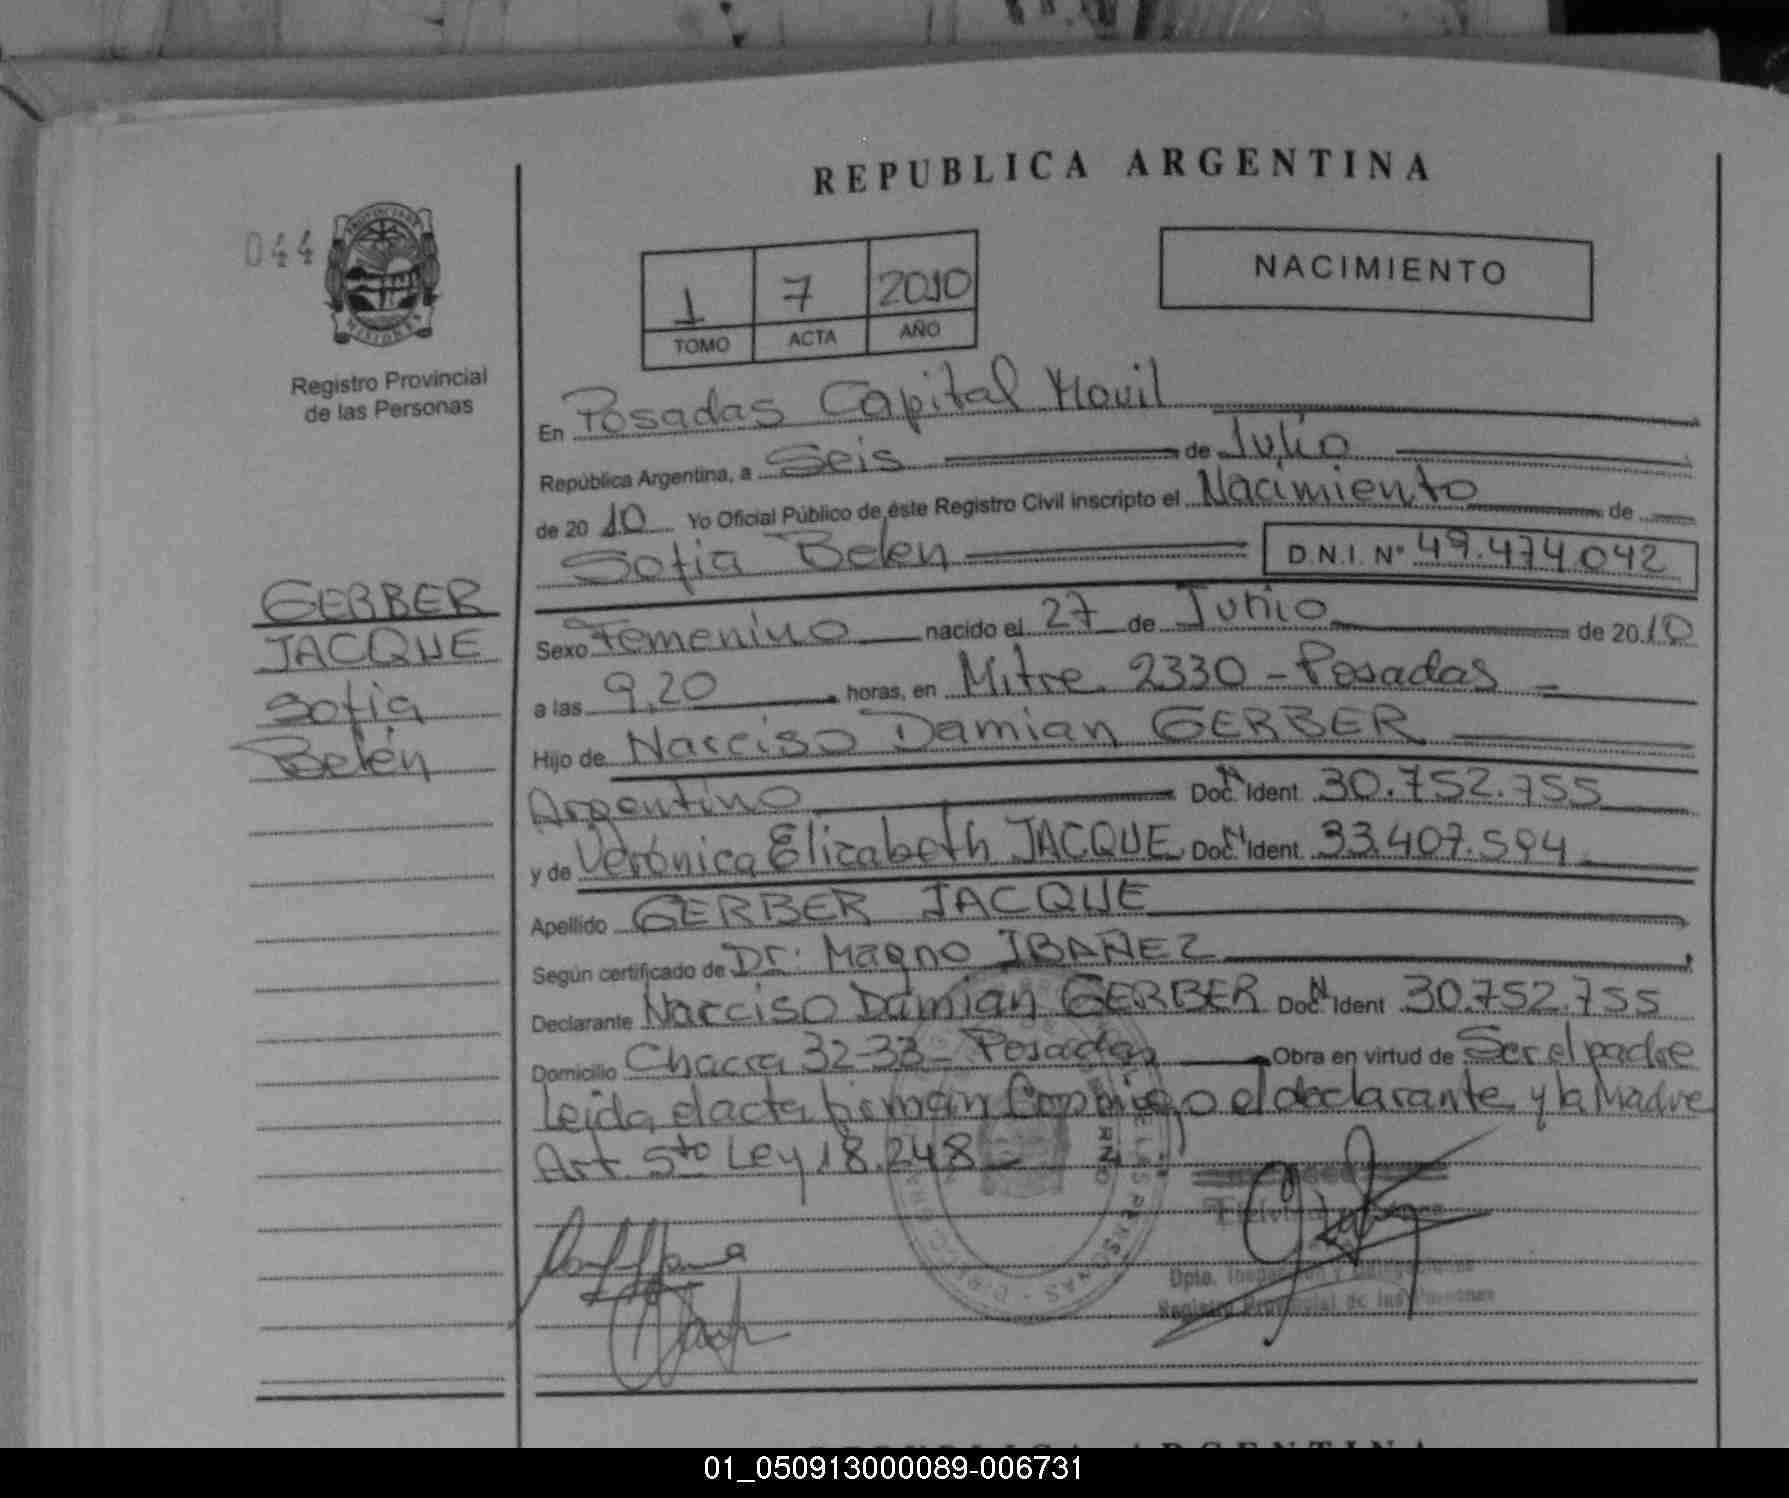 REPUBLICA ARGENTINA
044
PROVINCIA DE
MISIONES
Registro Provincial
de las Personas
1 7 2010
TOMO ACTA AÑO
NACIMIENTO
En Posadas Capital Movil
República Argentina, a Seis de Julio
de 20 10 Yo Oficial Público de éste Registro Civil inscripto el Nacimiento de
Sofia Belen D.N.I. Nº 49.474.042
GERBER
JACQUE
Sofia
Belén
Sexo Femenino nacido el 27 de Junio de 2010
a las 9,20 horas, en Mitre 2330 - Posadas
Hijo de Narciso Damian GERBER
Argentino Doc. N Ident 30.752.755
y de Verónica Elizabeth JACQUE Doc. N Ident 33.407.594
Apellido GERBER JACQUE
Según certificado de Dr. Magno IBAÑEZ
Declarante Narciso Damian GERBER Doc. N Ident 30.752.755
Domicilio Chacra 32-33 - Posadas Obra en virtud de Ser el padre
Leida el acta firman Conmigo el declarante y la Madre
Art. 5to Ley 18.248 -
Dpto.
Registro Provincial de las Personas
REPUBLICA ARGENTINA
01_050913000089-006731